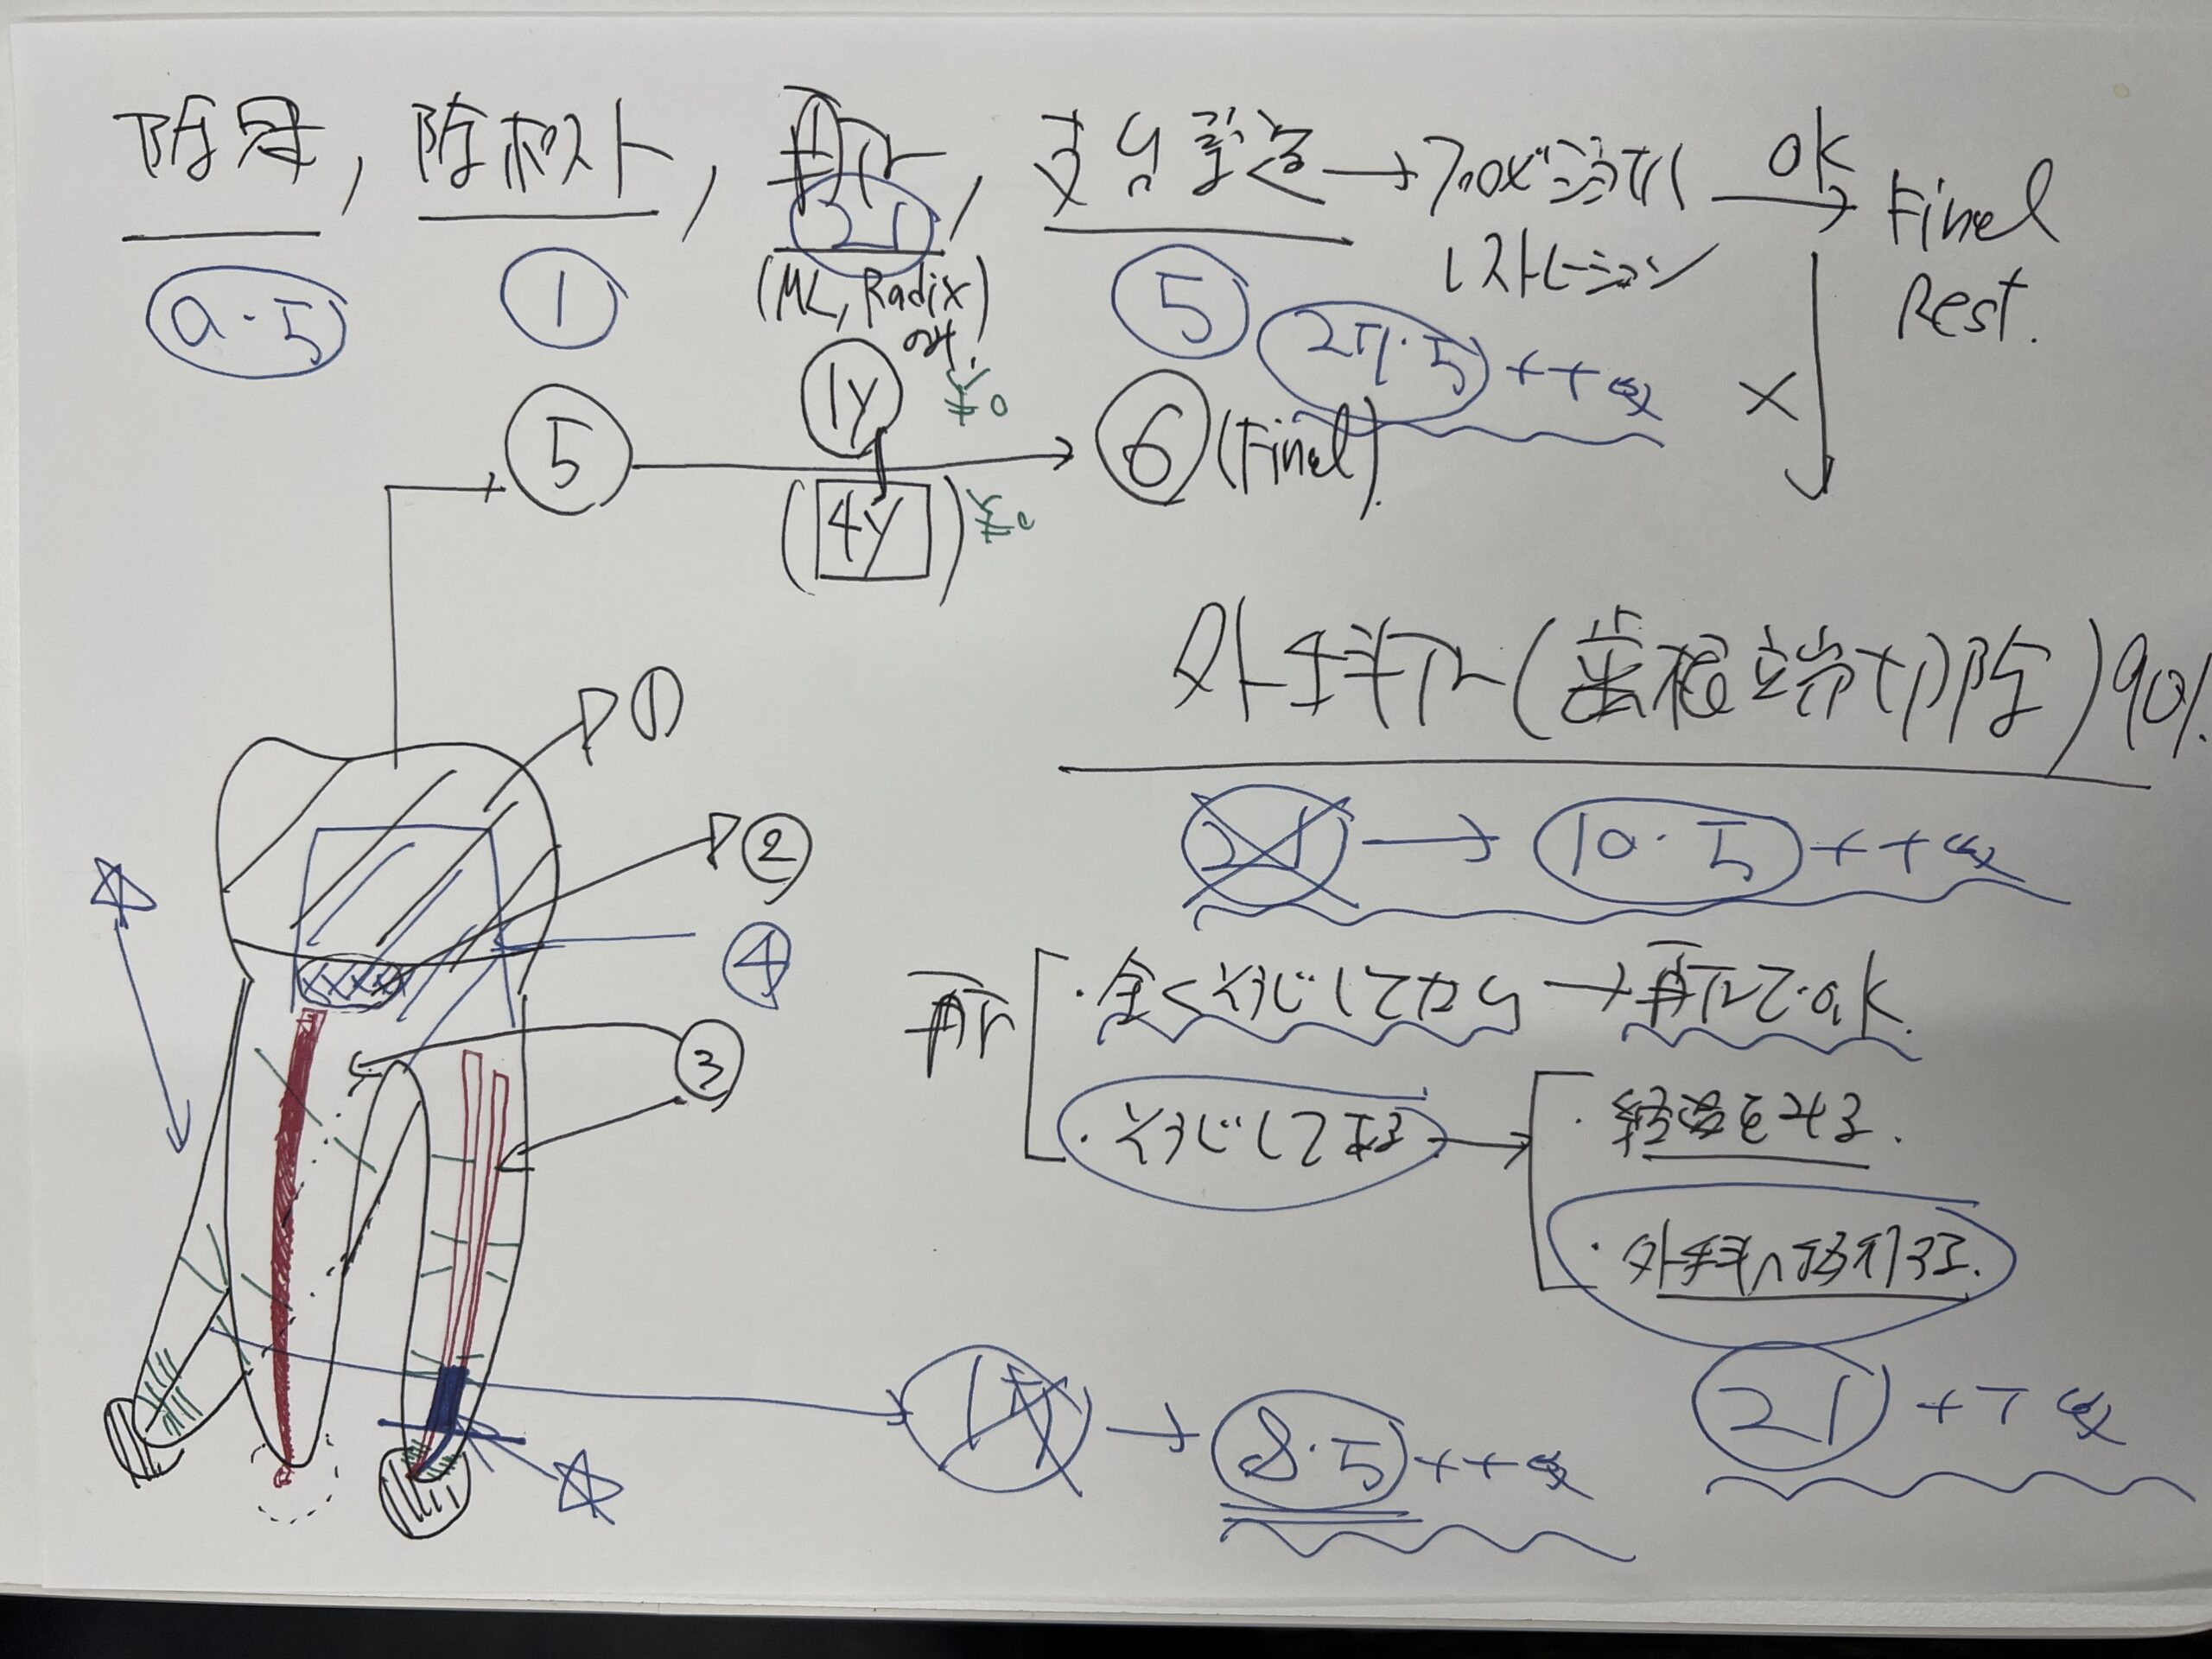 除冠, 除ポスト, 再 , 支台築造 → プロビジョナル OK Final
21
レストレーション Rest.
(ML, Radix)
or!
0.5 1 5 27.5 ++α ×
1y ¥0
5 6 (Final)
(4y) ¥0
外 (歯根端切除) 90%
① 
21 → 10.5 ++α
②
④
再 ・全くそうじしてない → 再 でOK.
③
・そうじしてある → ・経過をみる.
・外 へ移行する.
14 → 8.5 ++α 21 ++α